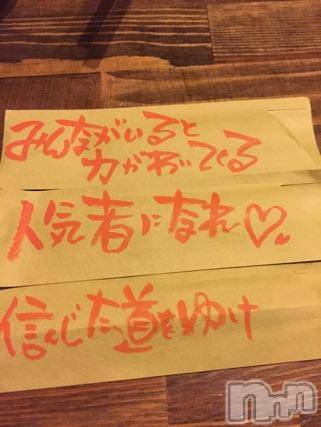 みんながいると
力がわいてくる
人気者になれ♡
信じた道をゆけ
nnn